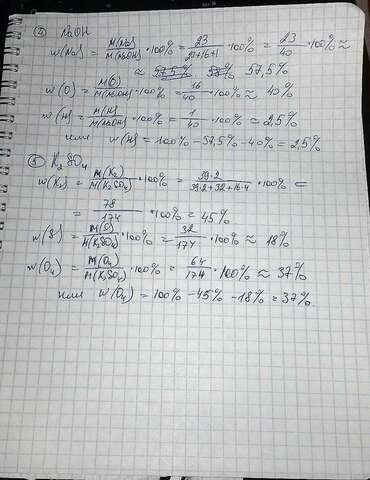 ② NaOH
w(Na) = M(Na)/M(NaOH) · 100% = 23/23+16+1 · 100% = 23/40 · 100% ≈
≈ 57,5%
w(O) = M(O)/M(NaOH) · 100% = 16/40 · 100% ≈ 40%
w(H) = M(H)/M(NaOH) · 100% = 1/40 · 100% = 2,5%
или w(H) = 100% - 57,5% - 40% = 2,5%
③ K₂SO₄
w(K₂) = M(K₂)/M(K₂SO₄) · 100% = 39·2/39·2+32+16·4 · 100% =
= 78/174 · 100% = 45%
w(S) = M(S)/M(K₂SO₄) · 100% = 32/174 · 100% ≈ 18%
w(O₄) = M(O₄)/M(K₂SO₄) · 100% = 64/174 · 100% ≈ 37%
или w(O₄) = 100% - 45% - 18% = 37%